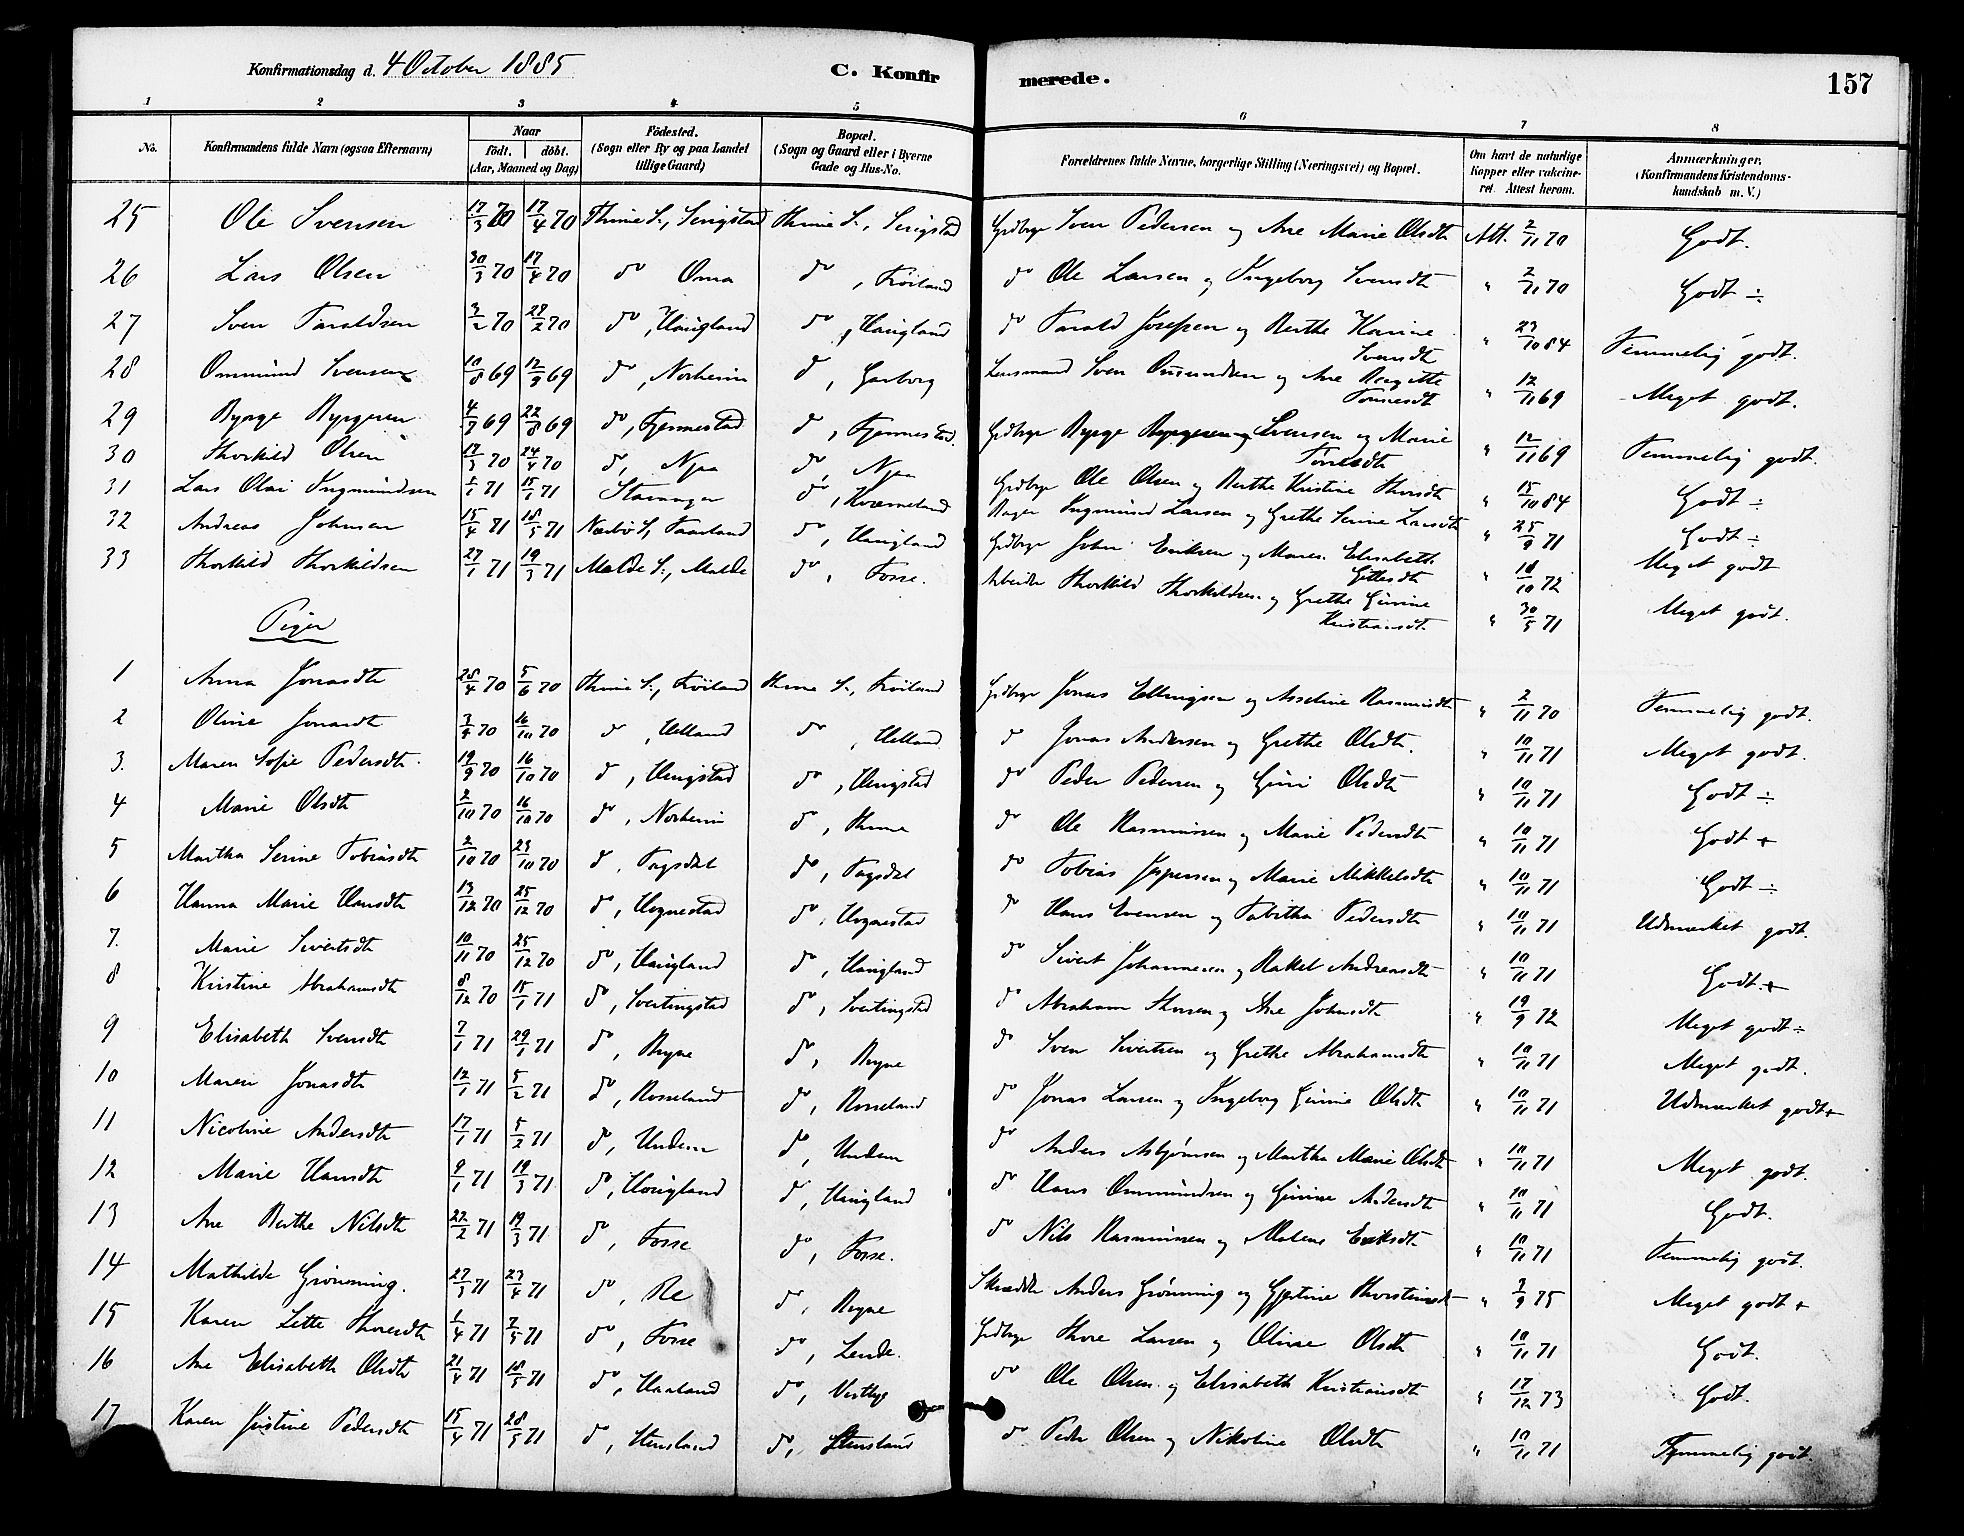 Konfirmationsdag d. 4 October 1885 C. Konfirmerede. 157
1 2 3 4 5 6 7 8
No. Konfirmandens fulde Navn (ogsaa Efternavn) Naar födt. döbt. (Aar, Maaned og Dag) Födested. (Sogn eller By og paa Landet tillige Gaard) Bopæl. (Sogn og Gaard eller i Byerne Gade og Hus-No. Forældrenes fulde Navne, borgerlige Stilling (Næringsvei) og Bopæl. Om havt de naturlige Kopper eller vaccineret. Attest herom. Anmærkninger. (Konfirmandens Kristendomskundskab m. V.)
25 Ole Svensen 17/3 70 17/4 70 Thime S., Serigstad Thime S., Serigstad Grdbrgr Sven Pedersen og Ane Marie Olsdtr Att. 2/11 70 Godt.
26 Lars Olsen 30/3 70 17/4 70 do Oma do, Fröiland do Ole Larsen og Ingeborg Svensdtr " 2/11 70 Godt ÷
27 Sven Taraldsen 3/2 70 27/2 70 do, Haugland do, Haugland do Tarald Josefsen og Berthe Karine Svensdtr " 23/10 84 Temmelig godt.
28 Ommund Svensen 10/8 69 12/9 69 do, Norheim do, Garborg Lensmand Sven Omundsen og Ane Bergitte Tønnesdtr " 12/11 69 Meget godt.
29 Byrge Byrgesen 4/7 69 22/8 69 do, Fjermestad do, Fjermestad. Grdbrgr Byrge Svensen og Marie Tørresdtr " 12/11 69 Temmelig godt.
30 Thorkild Olsen 17/3 70 24/4 70 do, Njaa do, Njaa Grdbrgr Ole Olsen og Berthe Kristine Thorsdtr " 15/10 84 Godt ÷
31 Lars Olai Ingmundsen 2/1 71 15/1 71 Stavanger do, Kværneland Bager Ingmund Larsen og Grethe Serine Larsdtr " 25/9 71 Godt ÷
32 Andreas Johnsen 15/4 71 18/5 71 Nærbö S., Taarland do, Haugland Grdbrgr John Eriksen og Maren Elisabeth Gittlesdtr " 18/10 72 Meget godt
33 Thorkild Thorkildsen 27/1 71 19/3 71 Malde S., Malde do, Fosse. Arbeider Thorkild Thorkildsen og Grethe Gurine Kristiansdtr " 30/5 71 Meget godt.
Piger
1 Anna Jonasdtr 28/4 70 5/6 70 Thime S., Fröiland Thime S., Fröiland Grdbrgr Jonas Ellingsen og Asseline Rasmusdtr " 2/11 70 Temmelig godt.
2 Oline Jonasdtr 3/9 70 16/10 70 do, Helland do, Helland do Jonas Andersen og Grethe Olsdtr. " 10/11 71 Meget godt.
3. Maren Sofie Pedersdtr 19/9 70 16/10 70 do, Hengistad do, Hengistad do Peder Pedersen og Guri Olsdtr " 10/11 71 Godt ÷
4 Marie Olsdtr 2/10 70 16/10 70 do, Norheim do, Thime do Ole Rasmussen og Marie Pedersdtr " 10/11 71 Godt +
5 Martha Serine Tobiasdtr 2/10 70 23/10 70 do, Fosdal do, Fosdal do Tobias Jespersen og Marie Mikkelsdtr " 10/11 71 Godt ÷
6 Hanna Marie Hansdtr 13/12 70 25/12 70 do, Hognestad do, Hognestad do Hans Evensen og Tabitha Pedersdtr " 10/11 71 Udmærket godt.
7. Marie Sivertsdtr 10/11 70 25/12 70 do, Haugland do, Haugland do Sivert Johannesen og Rakel Andreasdtr " 10/11 71 Godt. +
8 Kristine Abrahamsdtr 8/12 70 15/1 71 do, Svertingstad do, Svertingstad do Abraham Thorsen og Ane Johnsdtr " 19/9 72 Meget godt ÷
9 Elisabeth Svensdtr 7/1 71 29/1 71 do, Bryne do, Bryne do Sven Sivertsen og Grethe Abrahamsdtr " 10/11 71 Meget godt.
10 Maren Jonasdtr 12/1 71 5/2 71 do, Rosseland do, Rosseland do Jonas Larsen og Ingeborg Gurine Olsdtr " 10/11 71 Udmærket godt +
11 Nicoline Andersdtr 17/1 71 5/2 71 do, Undem do, Undem do Anders Asbjørnsen og Martha Marie Olsdtr " 10/11 71 Meget godt.
12 Marie Hansdtr 9/1 71 19/3 71 do, Haugland do, Haugland do Hans Ommundsen og Gurine Andersdtr " 10/11 71 Godt.
13 Ane Berthe Nilsdtr 22/2 71 19/3 71 do, Fosse do, Fosse. do Nils Rasmussen og Malene Eriksdtr " 10/11 71 Temmelig godt.
14 Mathilde Grönning. 27/3 71 23/4 71 do, Re do, Bryne Skrædder Anders Grönning og Gjertine Thorsteinsdtr " 3/9 75 Meget godt +
15 Karen Lette Thoresdtr 1/4 71 7/5 71 do, Fosse do, Lende. Grdbrgr Thore Larsen og Oline Olsdtr " 10/11 71 Godt.
16 Ane Elisabeth Olsdtr 21/4 71 18/5 71 do, Haaland do, Vestly do Ole Olsen og Elisabeth Kristiansdtr " 17/12 73 Godt.
17 Karen Justine Pedersdtr 15/4 71 28/5 71 do, Stensland do, Stensland do Peder Olsen og Nikoline Olsdtr " 10/11 71 Temmelig godt.